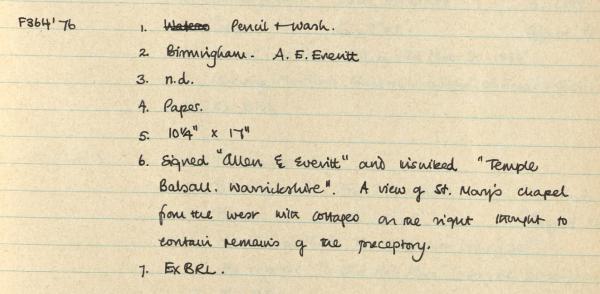 F364'76 1. Waterco Pencil + wash.
2. Birmingham. A. E. Everitt
3. n.d.
4. Paper.
5. 10¼" x 17"
6. Signed "Allen E Everitt" and inscribed "Temple
Balsall. Warrickshire". A view of St. Mary's chapel
from the west with cottages on the right thought to
contain remains of the preceptory.
7. Ex BRL.